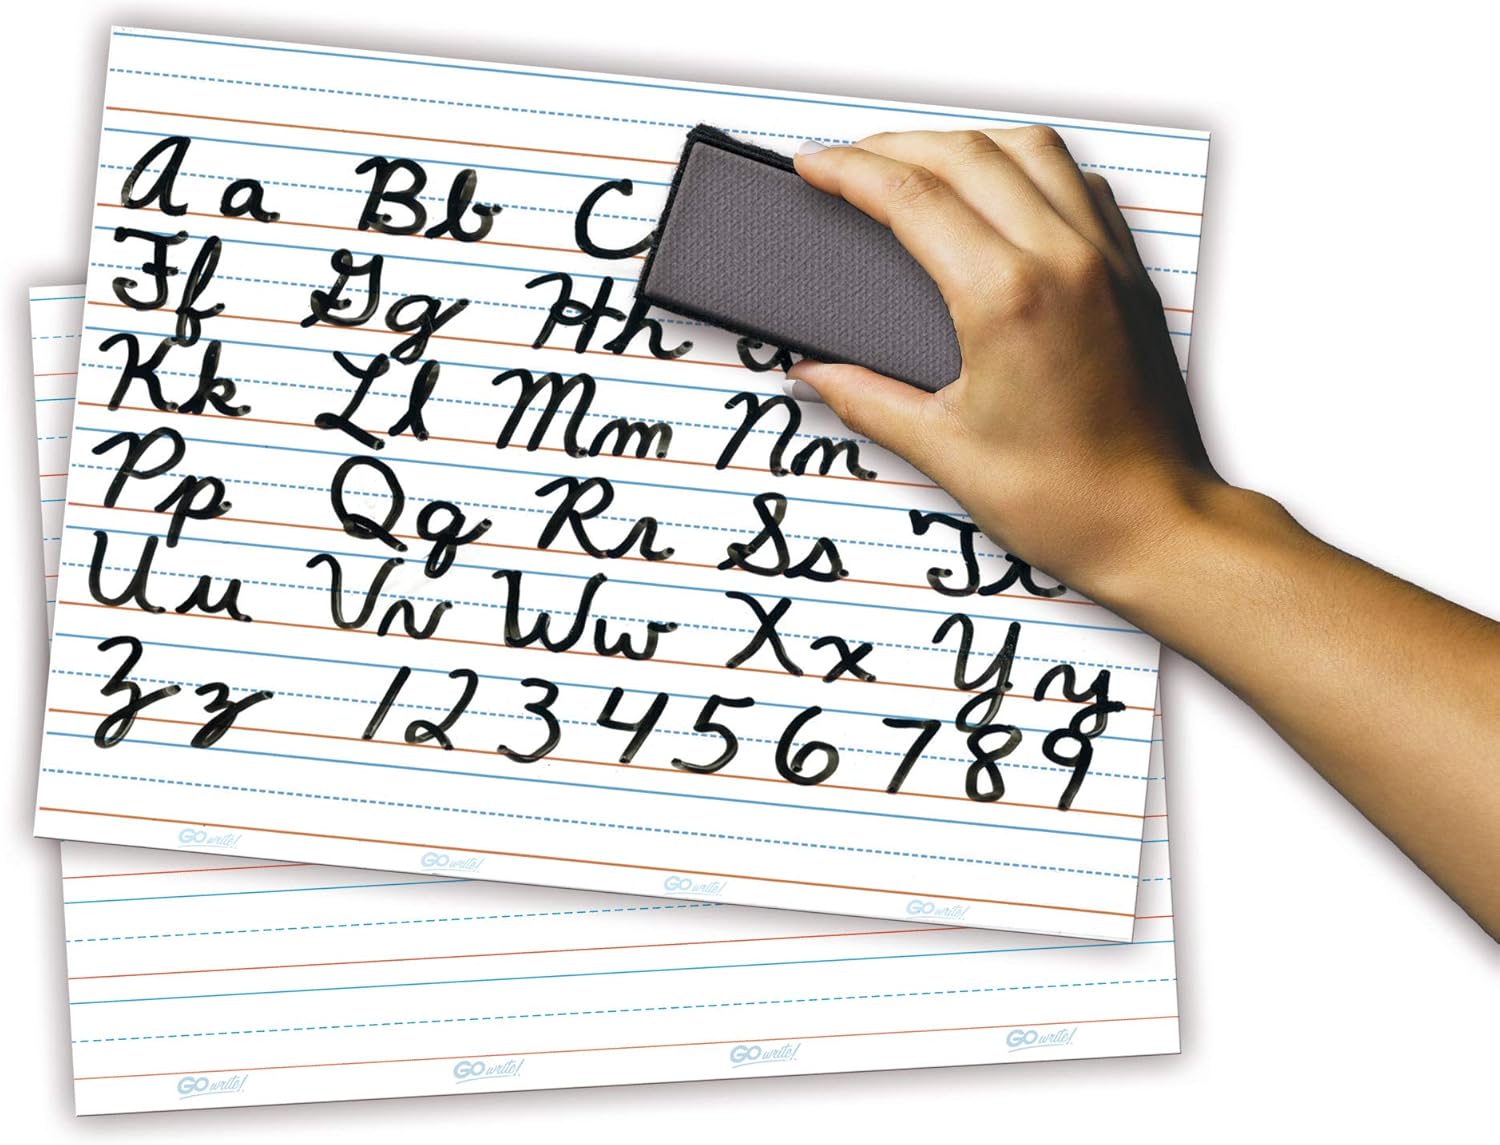 Aa Bb C
Ff Gg Hh
Kk Ll Mm Nn
Pp Qq Rr Ss Tt
Uu Vv Ww Xx Yy
Zz 1 2 3 4 5 6 7 8 9
GO write! GO write! GO write! GO write!
GO write! GO write! GO write! GO write!